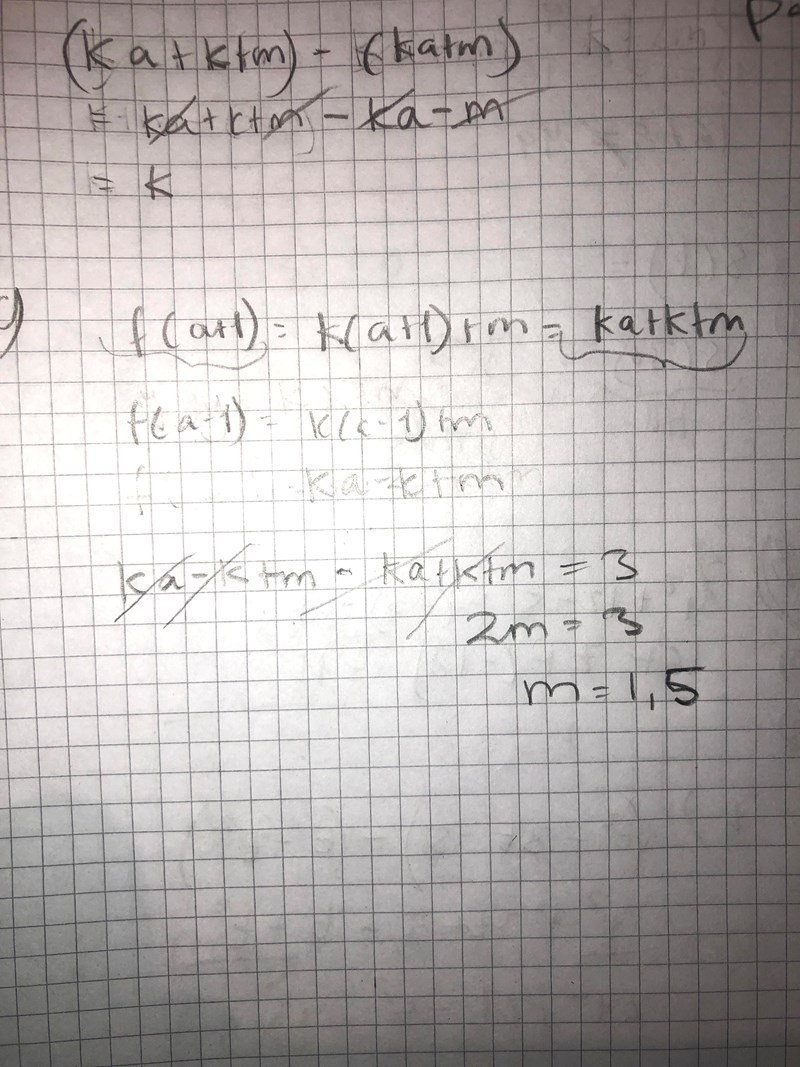 (ka+k+m) - (ka+m)
= ka+k+m - ka-m
= k
c) f(a+1) = k(a+1)+m = ka+k+m
f(a-1) = k(a-1)+m
ka-k+m
ka-k+m - ka+k+m = 3
2m = 3
m = 1,5